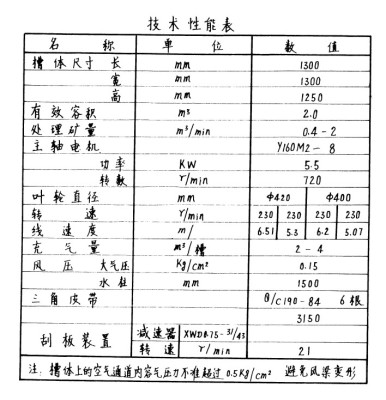 技术性能表
名 称 单 位 数 值
槽体尺寸 长 mm 1300
宽 mm 1300
高 mm 1250
有效容积 m³ 2.0
处理矿量 m³/min 0.4-2
主轴电机 Y160M2-8
功率 KW 5.5
转数 r/min 720
叶轮直径 mm Φ420 Φ400
转 速 r/min 230 230 230 230
线速度 m/ 6.51 5.3 6.2 5.07
充气量 m³/槽 2-4
风压 大气压 Kg/cm² 0.15
水柱 mm 1500
三角皮带 B/C190-84 6根
3150
刮板装置 减速器 XWDR75-31/43
转 速 r/min 21
注: 槽体上的空气通道内容气压力不准超过0.5Kg/cm² 避免风梁变形